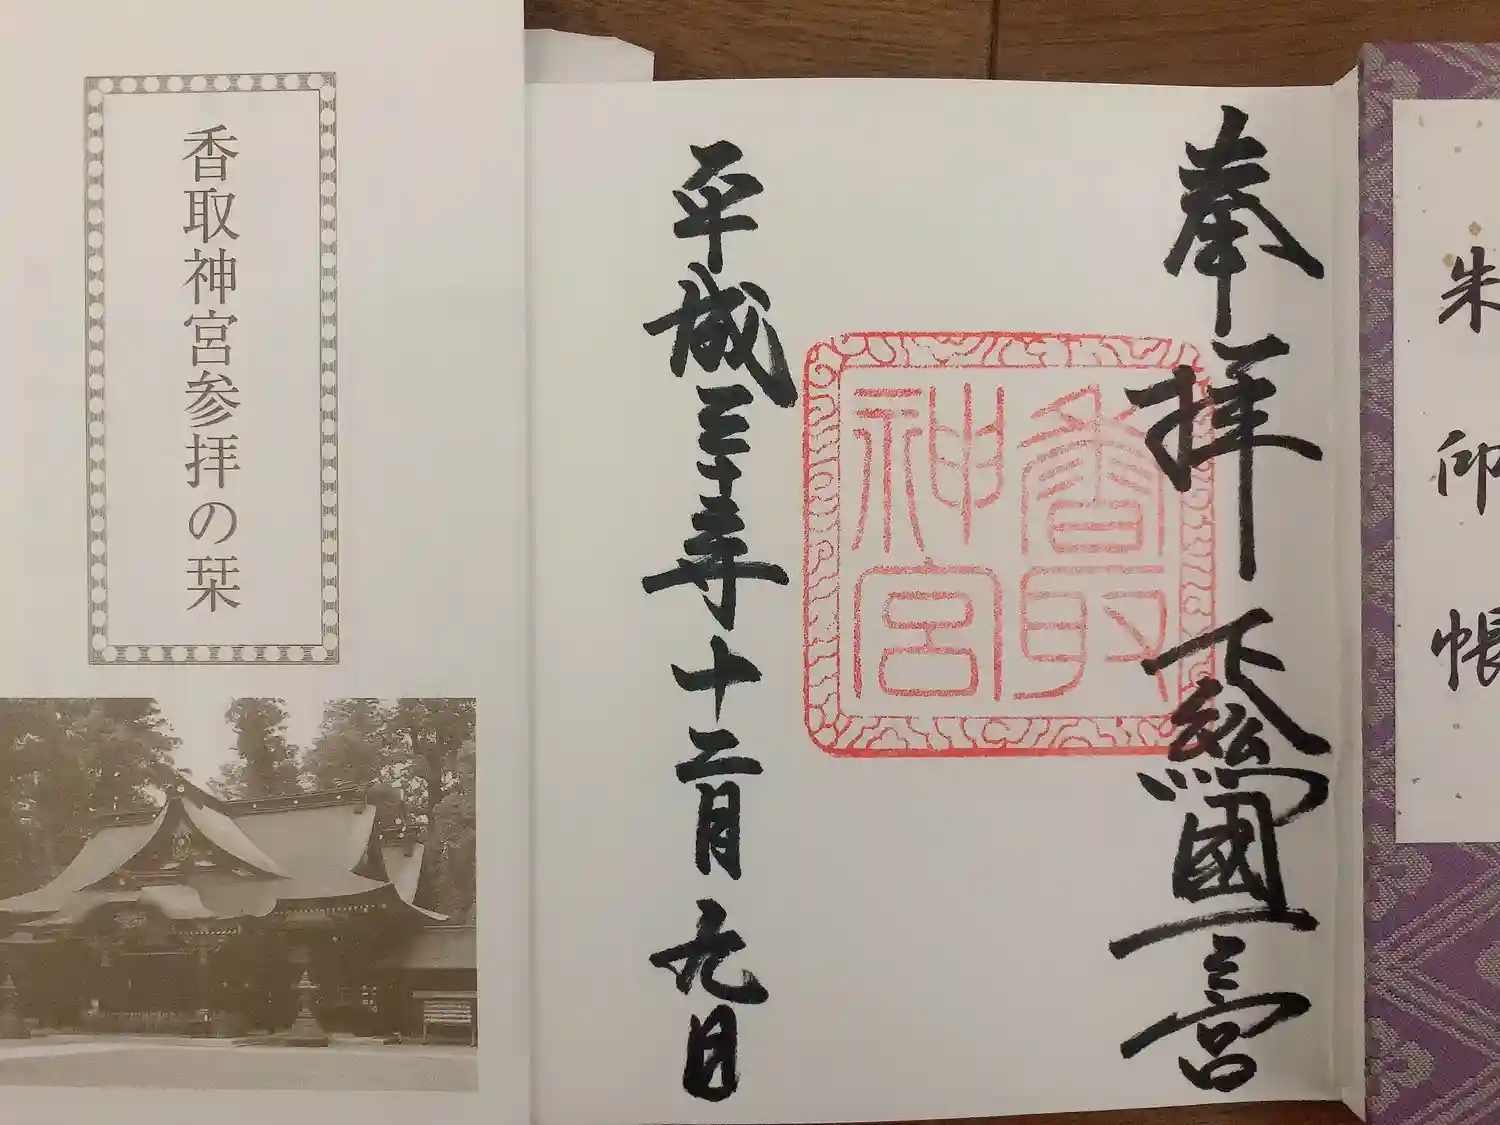 朱印帳
奉拝
下総國一宮
香取
神宮
平成三十年十二月九日
香取神宮参拝の栞